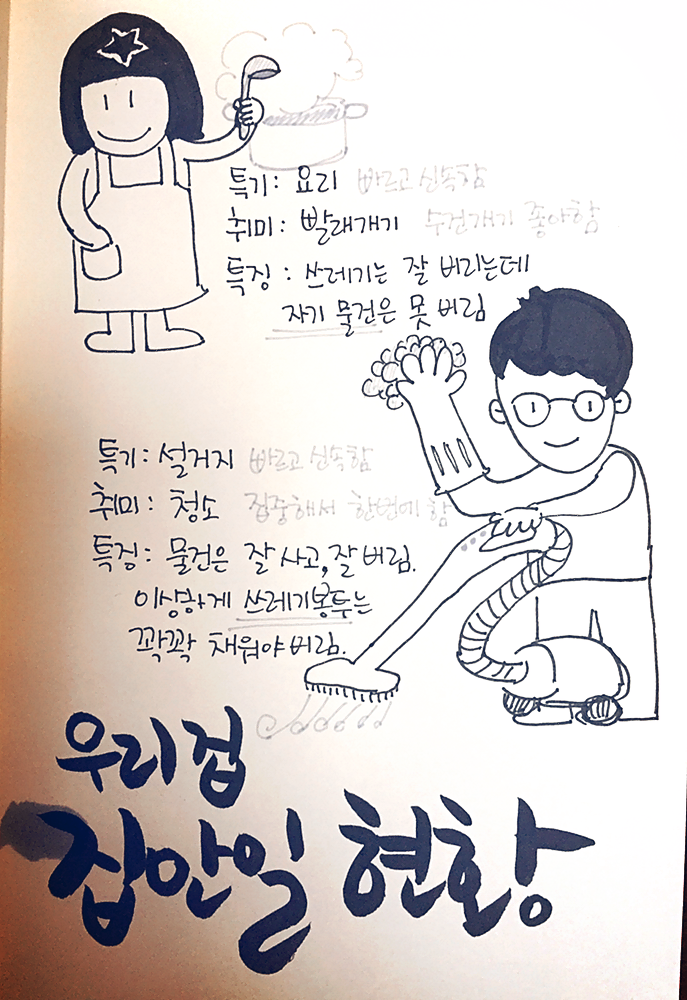 특기: 요리 빠르고 신속함
취미: 빨래개기 수건개기 좋아함
특징: 쓰레기는 잘 버리는데
자기 물건은 못 버림
특기: 설거지 빠르고 신속함
취미: 청소 집중해서 한번에 함
특징: 물건은 잘 사고, 잘 버림.
이상하게 쓰레기봉투는
꽉꽉 채워야 버림.
우리집
집안일 현황